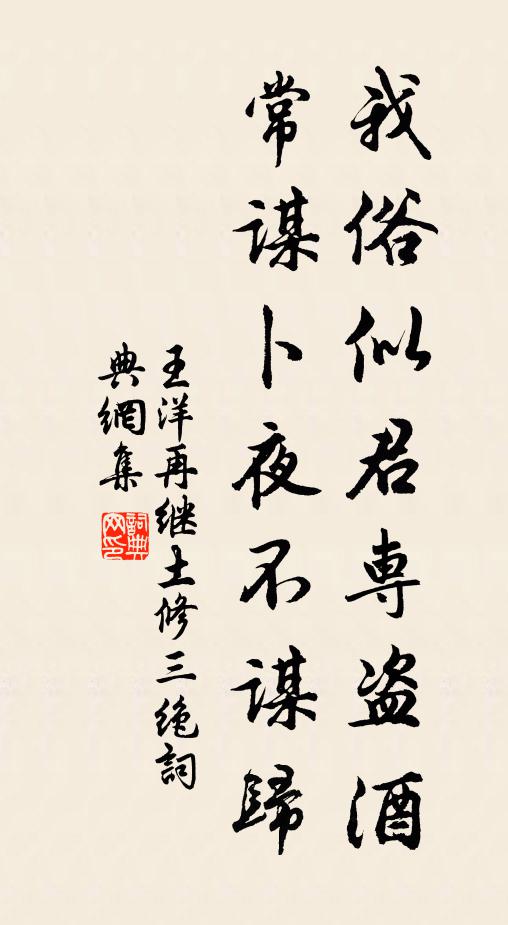 我俗似君専盗酒
常謀卜夜不謀歸
王洋再继士修三绝詞
典網集
詞典
网印